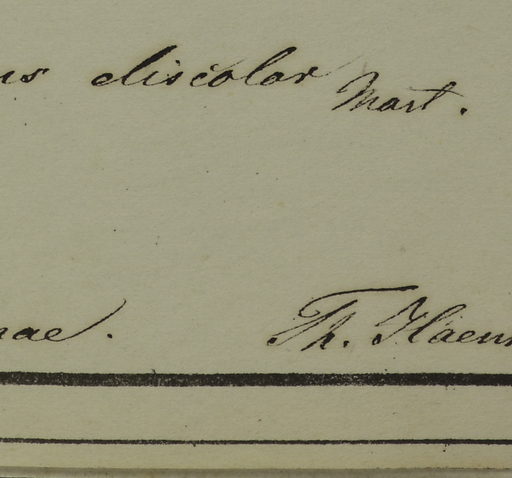 us discolor Mart.
nae. Th. Haenk